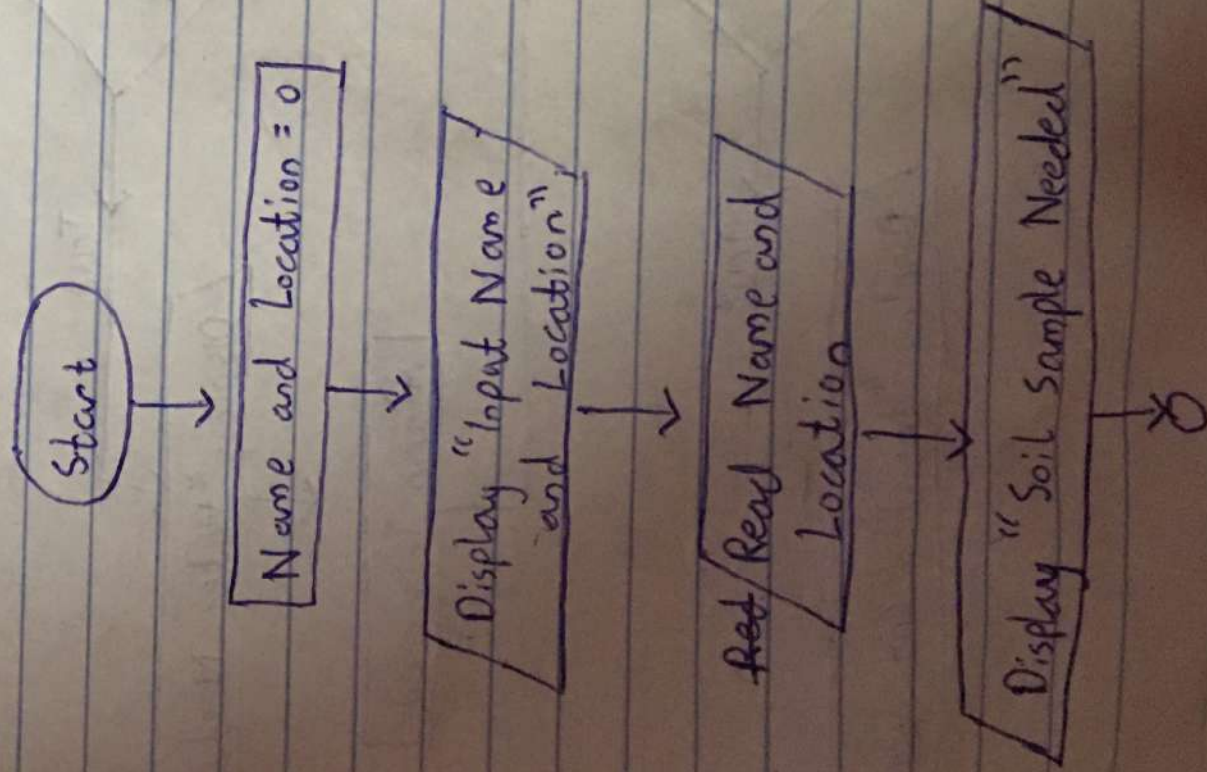 Start
Name and Location = 0
Display "Input Name
and Location"
Read Name and
Location
Display "Soil Sample Needed"